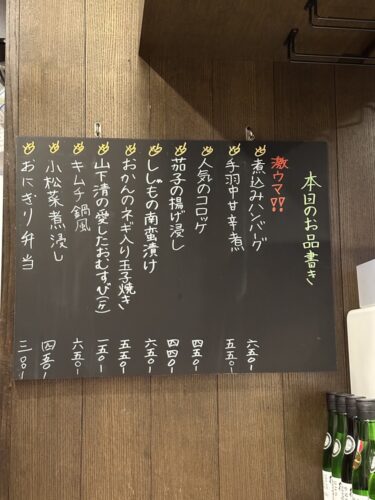 本日のお品書き
激ウマ!!
煮込みハンバーグ 六五〇-
手羽中甘辛煮 五五〇-
人気のコロッケ 四五〇-
茄子の揚げ浸し 四四〇-
ししゃもの南蛮漬け 六五〇-
おかんのネギ入り玉子焼き 五五〇-
山下清の愛したおむすび(1ケ) 一五〇-
キムチ鍋風 六五〇-
小松菜煮浸し 四五〇-
おにぎり弁当 三〇〇-